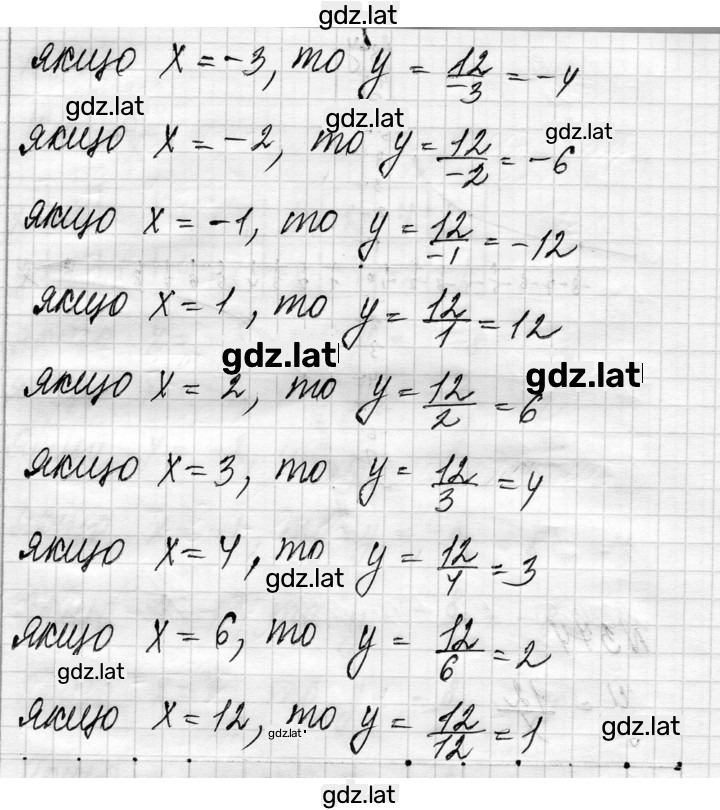 gdz.lat
якщо x = -3, то y = 12/-3 = -4
gdz.lat gdz.lat
якщо x = -2, то y = 12/-2 = -6
gdz.lat
якщо x = -1, то y = 12/-1 = -12
якщо x = 1, то y = 12/1 = 12
gdz.lat gdz.lat
якщо x = 2, то y = 12/2 = 6
якщо x = 3, то y = 12/3 = 4
якщо x = 4, то y = 12/4 = 3
gdz.lat
якщо x = 6, то y = 12/6 = 2
gdz.lat
якщо x = 12, то y = 12/12 = 1
gdz.lat gdz.lat
gdz.lat